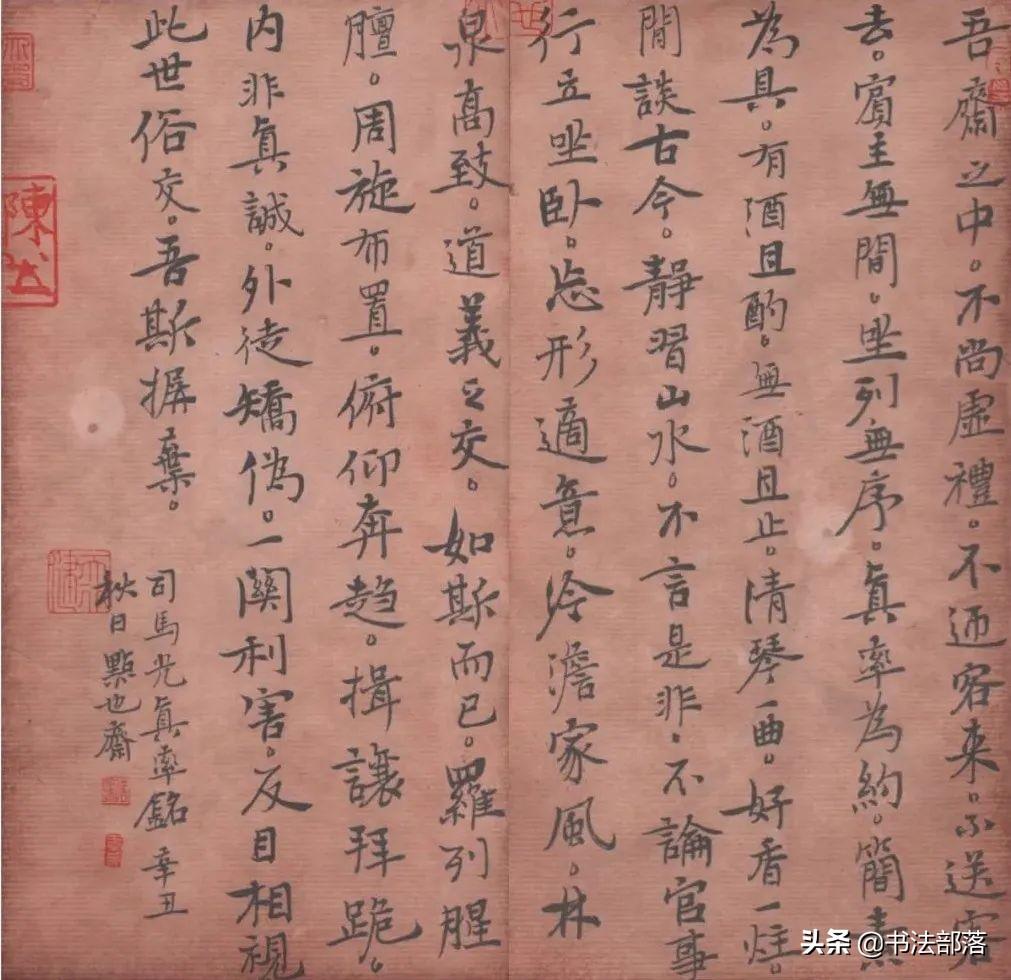 吾齋之中。不尚虛禮。不迎客來。不送客
去。賓主無間。坐列無序。真率為約。簡素
為具。有酒且酌。無酒且止。清琴一曲。好香一炷。
閒談古今。靜習山水。不言是非。不論官事
行立坐臥。忘形適意。冷澹家風。林
泉高致。道義之交。如斯而已。羅列腥
膻。周旋布置。俯仰奔趨。揖讓拜跪。
内非眞誠。外徒矯偽。一關利害。反目相視
此世俗交。吾斯摒棄。
司馬光眞率銘 辛丑
秋日點也齋
頭条 @书法部落